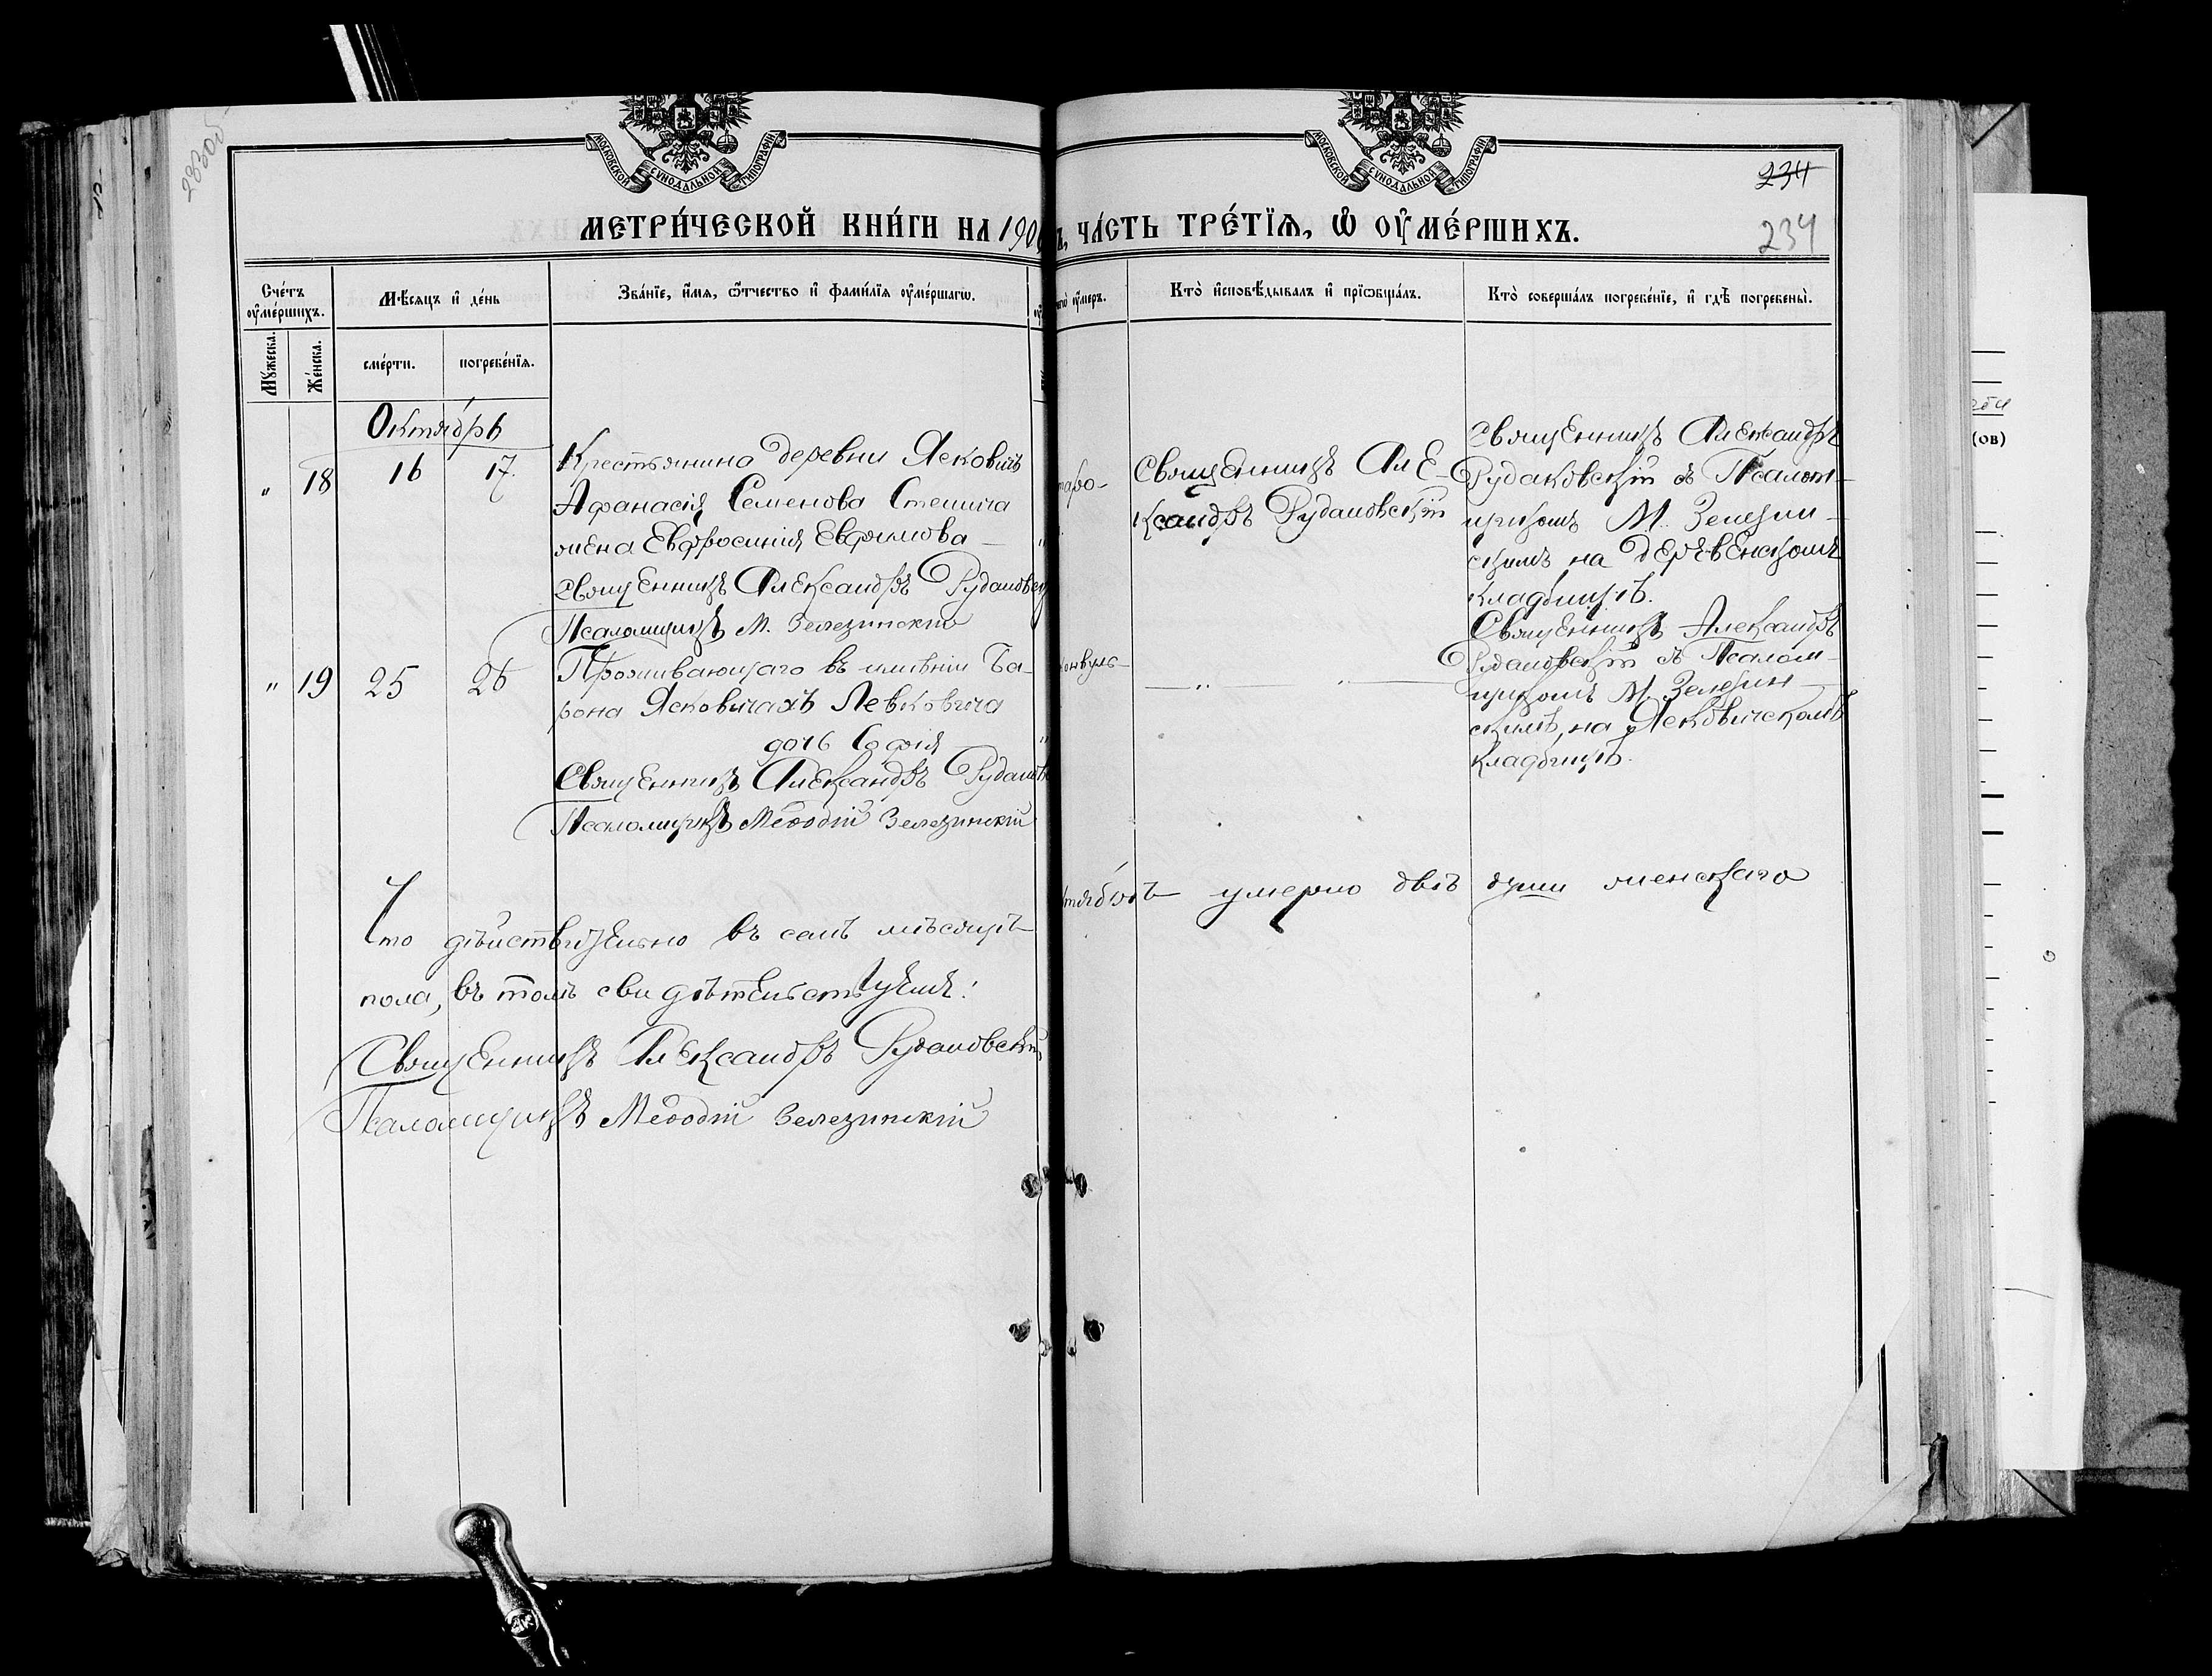 233об
234
234
МОСКОВСКОЙ СУНОДАЛЬНОЙ ТИПОГРАФІИ
МОСКОВСКОЙ СУНОДАЛЬНОЙ ТИПОГРАФІИ
МЕТРИ́ЧЕСКОЙ КНИ́ГИ НА 190
ЧА́СТЬ ТРЕ́ТЇѦ, Ѡ҆ ОУ҆МЕ́РШИХЪ.
Сче́тъ оу҆ме́ршихъ.
Мѣ́сяцъ и҆ де́нь
Зва́нїе, и҆́мѧ, ѻ҆́тчество и҆ фами́лїѧ оу҆ме́ршагѡ.
оу҆́меръ.
Кто̀ и҆сповѣ́дывалъ и҆ прїѡбща́лъ.
Кто̀ соверша́лъ погребе́нїе, и҆ гдѣ̀ погребены̀.
Му́жеска.
Же́нска.
сме́рти.
погребе́нїѧ.
Октябрь
" 18 16 17.
Крестьянина деревни Ясковичъ
Афанасія Семенова Стешича
жена Евфросинія Ефимова —
Священникъ Александръ Рудаковск
Псаломщикъ М. Зелезинскій
Священникъ Але-
ксандръ Рудаковскій
Священникъ Александръ
Рудаковскій съ Псалом-
щикомъ М. Зелезин-
скимъ на деревенскомъ
кладбищѣ.
" 19 25 26
Проживающаго въ имѣніи Ба-
рона Ясковичахъ Левковича
дочь Софія
Священникъ Александръ Рудаков
Псаломщикъ Меѳодій Зелезинскій
конвуль-
— " — " —
Священникъ Александръ
Рудаковскій съ Псалом-
щикомъ М. Зелезин-
скимъ, на Ясковичскомъ
кладбищѣ.
Что дѣйствительно въ семъ мѣсяцѣ
тябрѣ умерло двѣ души женскаго
пола, въ томъ свидѣтельствуемъ:
Священникъ Александръ Рудаковскій
Псаломщикъ Меѳодій Зелезинскій
(ов)